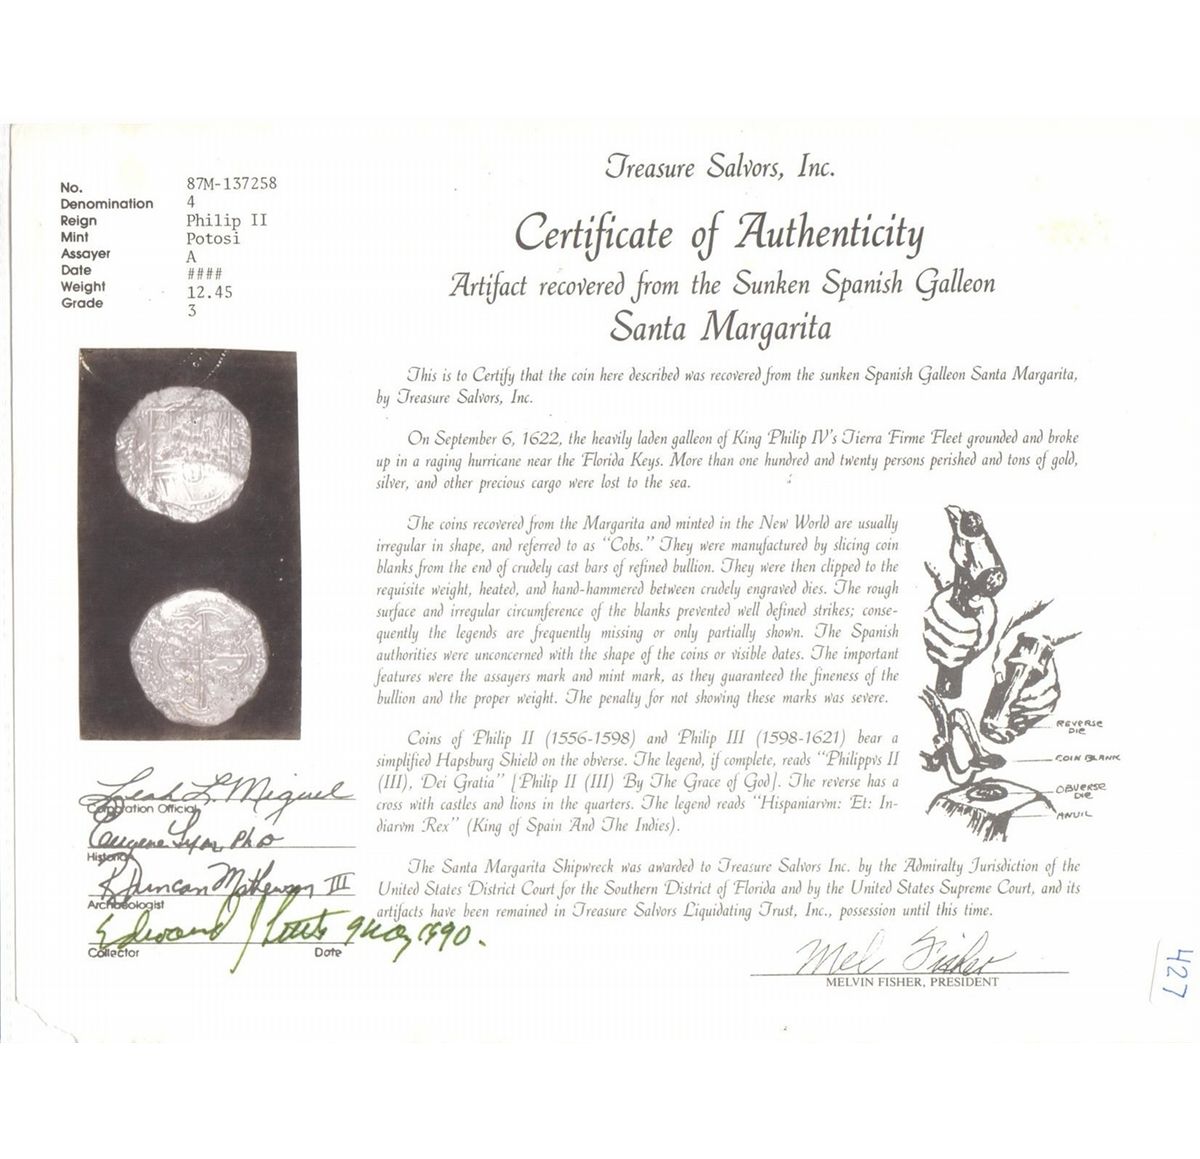 Treasure Salvors, Inc.
Certificate of Authenticity
Artifact recovered from the Sunken Spanish Galleon
Santa Margarita
No. 87M-137258
Denomination 4
Reign Philip II
Mint Potosi
Assayer A
Date ####
Weight 12.45
Grade 3
This is to Certify that the coin here described was recovered from the sunken Spanish Galleon Santa Margarita,
by Treasure Salvors, Inc.
On September 6, 1622, the heavily laden galleon of King Philip IV's Tierra Firme Fleet grounded and broke
up in a raging hurricane near the Florida Keys. More than one hundred and twenty persons perished and tons of gold,
silver, and other precious cargo were lost to the sea.
The coins recovered from the Margarita and minted in the New World are usually
irregular in shape, and referred to as "Cobs." They were manufactured by slicing coin
blanks from the end of crudely cast bars of refined bullion. They were then clipped to the
requisite weight, heated, and hand-hammered between crudely engraved dies. The rough
surface and irregular circumference of the blanks prevented well defined strikes; conse-
quently the legends are frequently missing or only partially shown. The Spanish
authorities were unconcerned with the shape of the coins or visible dates. The important
features were the assayers mark and mint mark, as they guaranteed the fineness of the
bullion and the proper weight. The penalty for not showing these marks was severe.
Coins of Philip II (1556-1598) and Philip III (1598-1621) bear a
simplified Hapsburg Shield on the obverse. The legend, if complete, reads "Philippvs II
(III), Dei Gratia" [Philip II (III) By The Grace of God]. The reverse has a
cross with castles and lions in the quarters. The legend reads "Hispaniarvm: Et: In-
diarvm Rex" (King of Spain And The Indies).
The Santa Margarita Shipwreck was awarded to Treasure Salvors Inc. by the Admiralty Jurisdiction of the
United States District Court for the Southern District of Florida and by the United States Supreme Court, and its
artifacts have been remained in Treasure Salvors Liquidating Trust, Inc., possession until this time.
REVERSE
DIE
COIN BLANK
OBVERSE
DIE
ANVIL
Leah L. Miguel
Corporation Official
Eugene Lyon, PhD
Historian
R Duncan Mathewson III
Archaeologist
Edward J 9 May 1990.
Collector Date
Mel Fisher
MELVIN FISHER, PRESIDENT
427